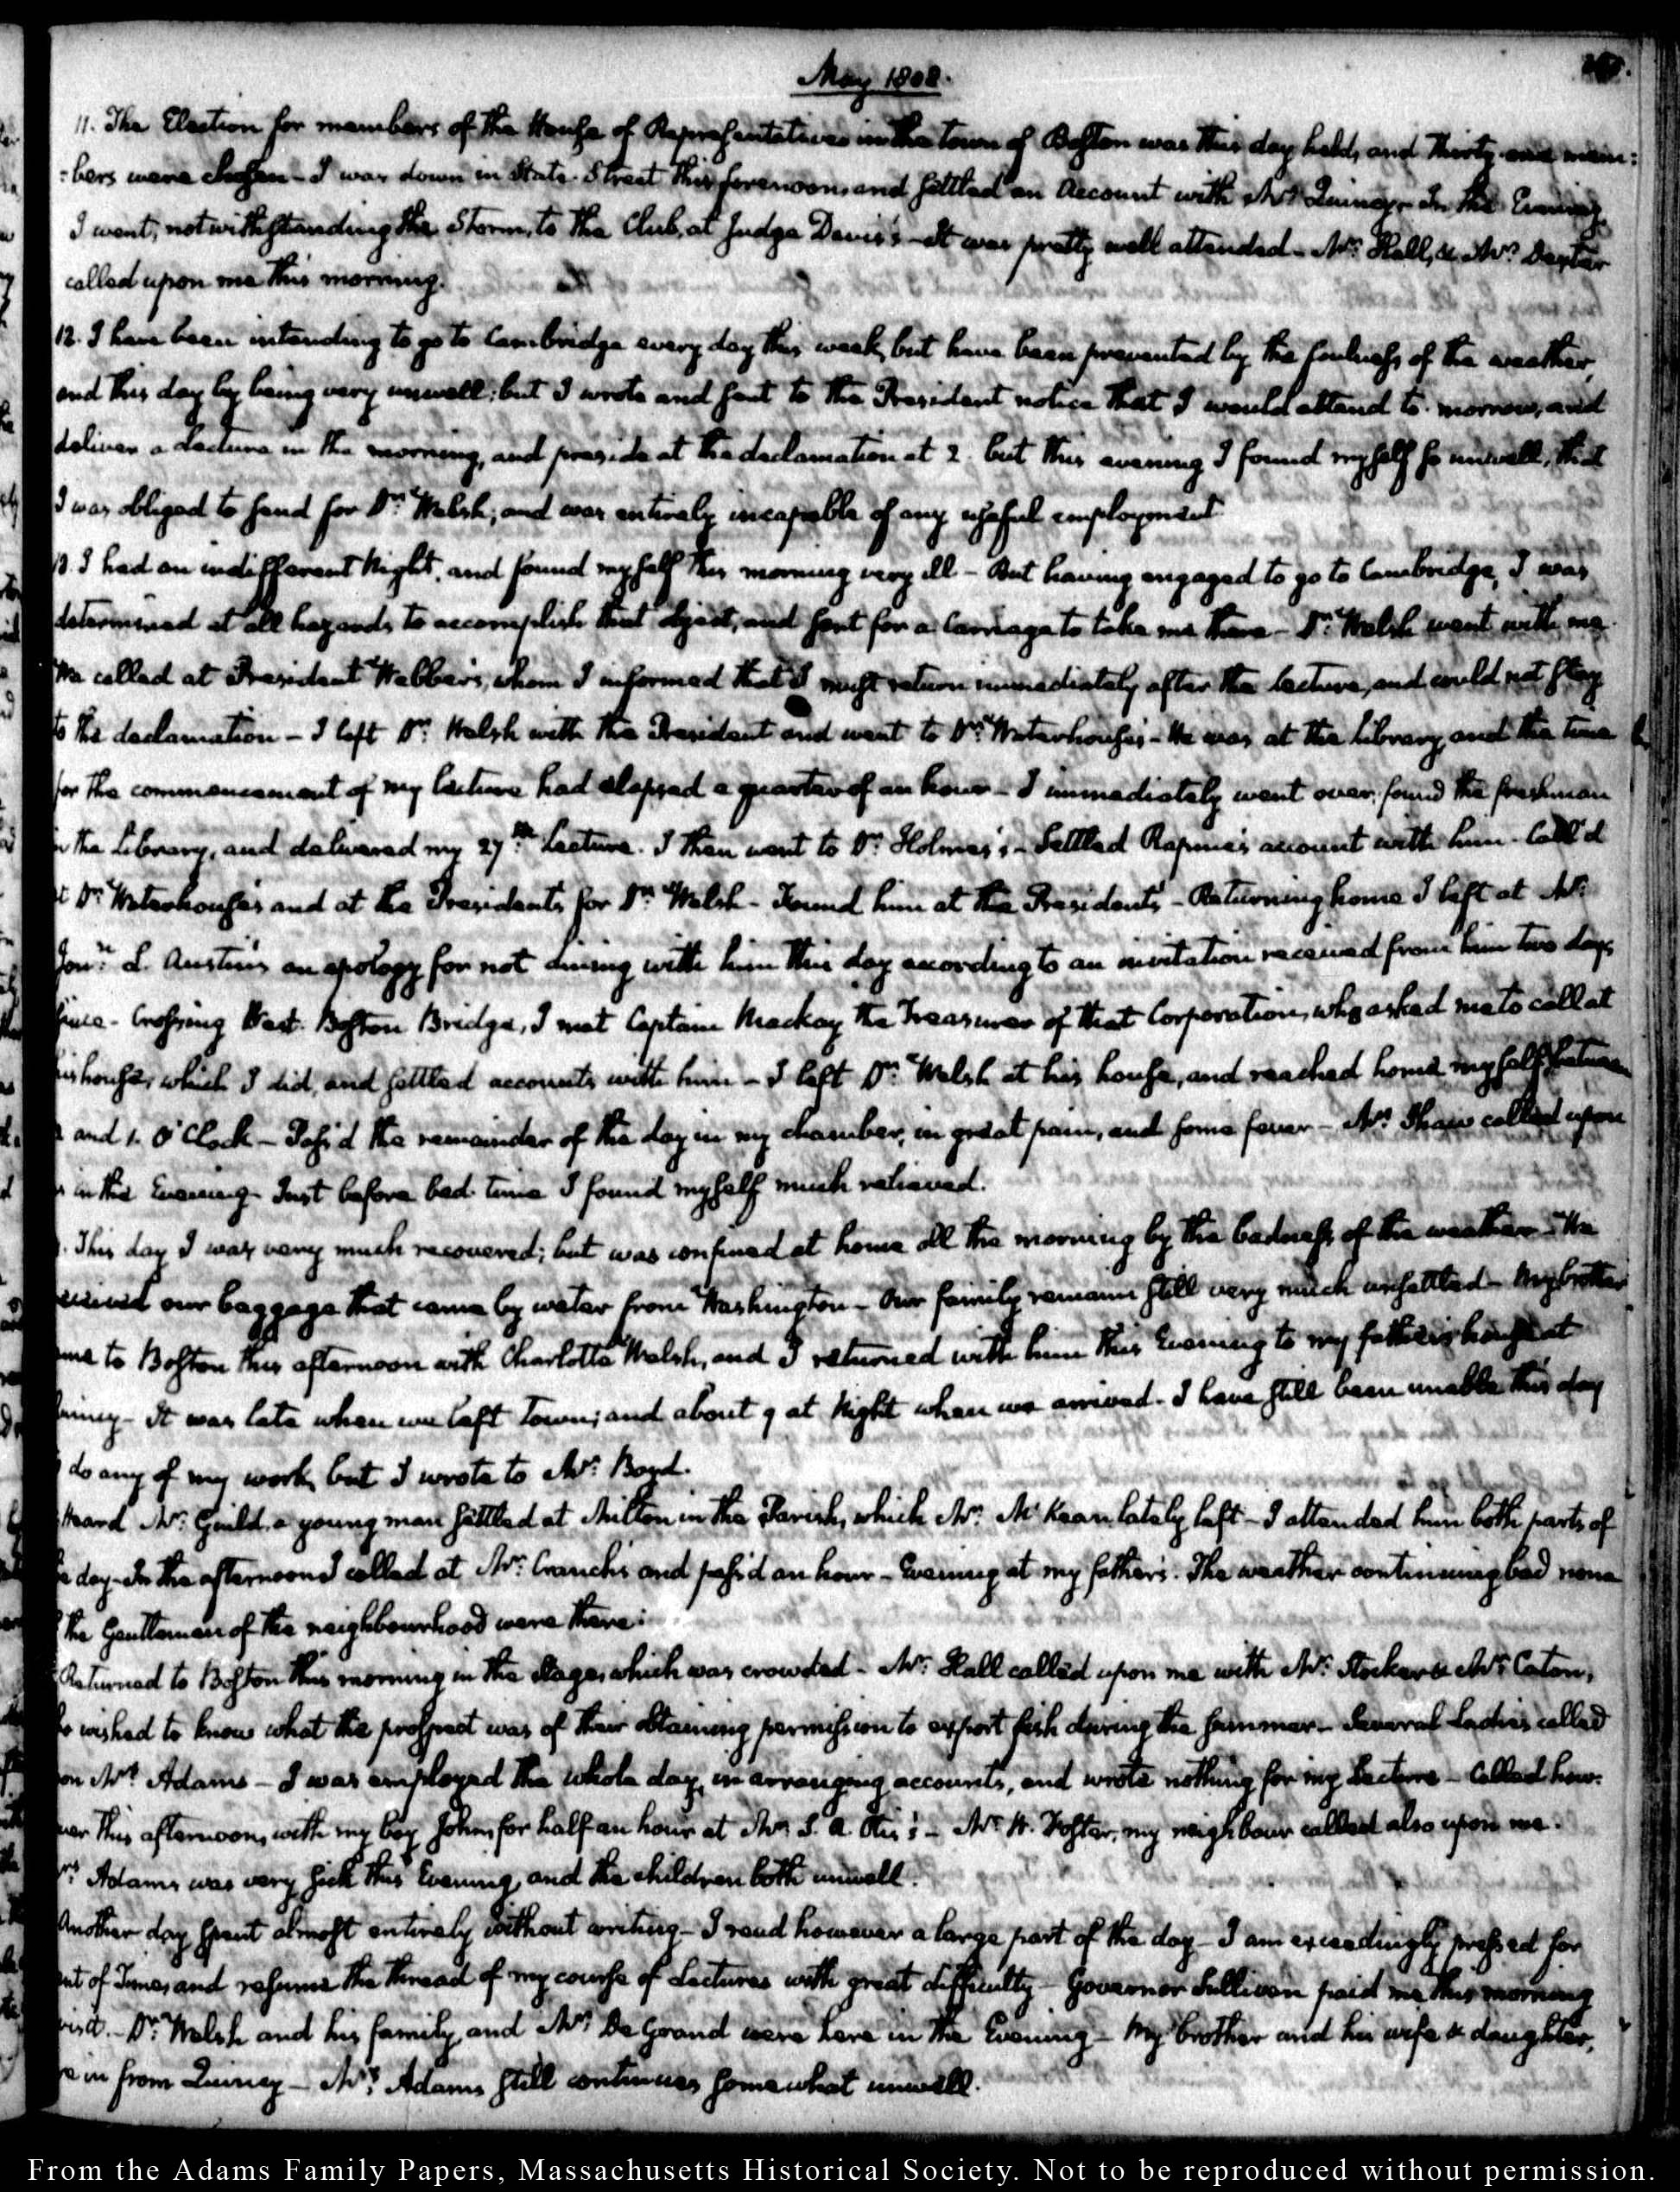 May 1808.
11. The Election for members of the House of Representatives in the town of Boston was this day held, and thirty-one mem:
:bers were chosen - I was down in State-Street this forenoon, and settled an Account with Mr. Quincy - In the Evening,
I went, notwithstanding the Storm, to the Club, at Judge Davis's - It was pretty well attended - Mr. Hall, & Mr. Dexter
called upon me this morning.
12. I have been intending to go to Cambridge every day this week, but have been prevented by the foulness of the weather,
and this day by being very unwell; but I wrote and sent to the President notice that I would attend to-morrow, and
deliver a Lecture in the morning, and preside at the declamation at 2. but this evening I found myself so unwell, that
I was obliged to send for Dr. Welsh; and was entirely incapable of any useful employment
13. I had an indifferent Night, and found myself this morning very ill - But having engaged to go to Cambridge, I was
determined at all hazards to accomplish that object, and sent for a Carriage to take me there - Dr. Welsh went with me.
We called at President Webber's, whom I informed that I must return immediately after the lecture, and could not stay
to the declamation - I left Dr. Welsh with the President and went to Dr. Waterhouse's - He was at the Library, and the time
for the commencement of my lecture had elapsed a quarter of an hour - I immediately went over, found the freshmen
in the Library, and delivered my 27th. Lecture. I then went to Dr. Holmes's - Settled account with him - Call'd
at Dr. Waterhouse's and at the Presidents for Dr. Welsh - Found him at the Presidents - Returning home I left at Mr.
Jonn. L. Austin's an apology for not dining with him this day according to an invitation received from him two days
since - Crossing West-Boston Bridge, I met Captain Mackay the Treasurer of that Corporation, who asked me to call at
his house, which I did, and settled accounts with him - I left Dr. Welsh at his house, and reached home myself between
and 1. O'Clock - Pass'd the remainder of the day in my chamber, in great pain, and some fever - Mr. Shaw called upon
in the Evening - Just before bed-time I found myself much relieved.
This day I was very much recovered; but was confined at home all the morning by the badness of the weather - We
received our baggage that came by water from Washington - Our family remains still very much unsettled - My brother
came to Boston this afternoon with Charlotte Welsh, and I returned with him this Evening to my father's house at
Quincy - It was late when we left town; and about 9 at Night when we arrived - I have still been unable this day
do any of my work, but I wrote to Mr. Boyd.
Heard Mr. Guild, a young man settled at Milton in the Parish, which Mr. McKean lately left - I attended him both parts of
the day - In the afternoon I called at Mr. Cranch's and pass'd an hour - Evening at my father's. The weather continuing bad none
the Gentlemen of the neighbourhood were there.
Returned to Boston this morning in the Stage, which was crowded - Mr. Hall called upon me with Mr. Stocker & Mr. Caton,
who wished to know what the prospect was of their obtaining permission to export fish during the summer - Several Ladies called
on Mrs. Adams - I was employed the whole day, in arranging accounts, and wrote nothing for my Lecture - Called how-
ever this afternoon, with my boy John, for half an hour at Mr. S. A. Otis's - Mr. W. Foster, my neighbour called also upon me.
Mrs. Adams was very sick this Evening, and the children both unwell.
Another day spent almost entirely without writing - I read however a large part of the day - I am exceedingly pressed for
want of Time, and resume the thread of my course of Lectures with great difficulty - Governor Sullivan paid me this morning
visit. - Dr. Welsh and his family, and Mr. De Grand were here in the Evening - My brother and his wife & daughter,
in from Quincy - Mrs. Adams still continues somewhat unwell.
From the Adams Family Papers, Massachusetts Historical Society. Not to be reproduced without permission.